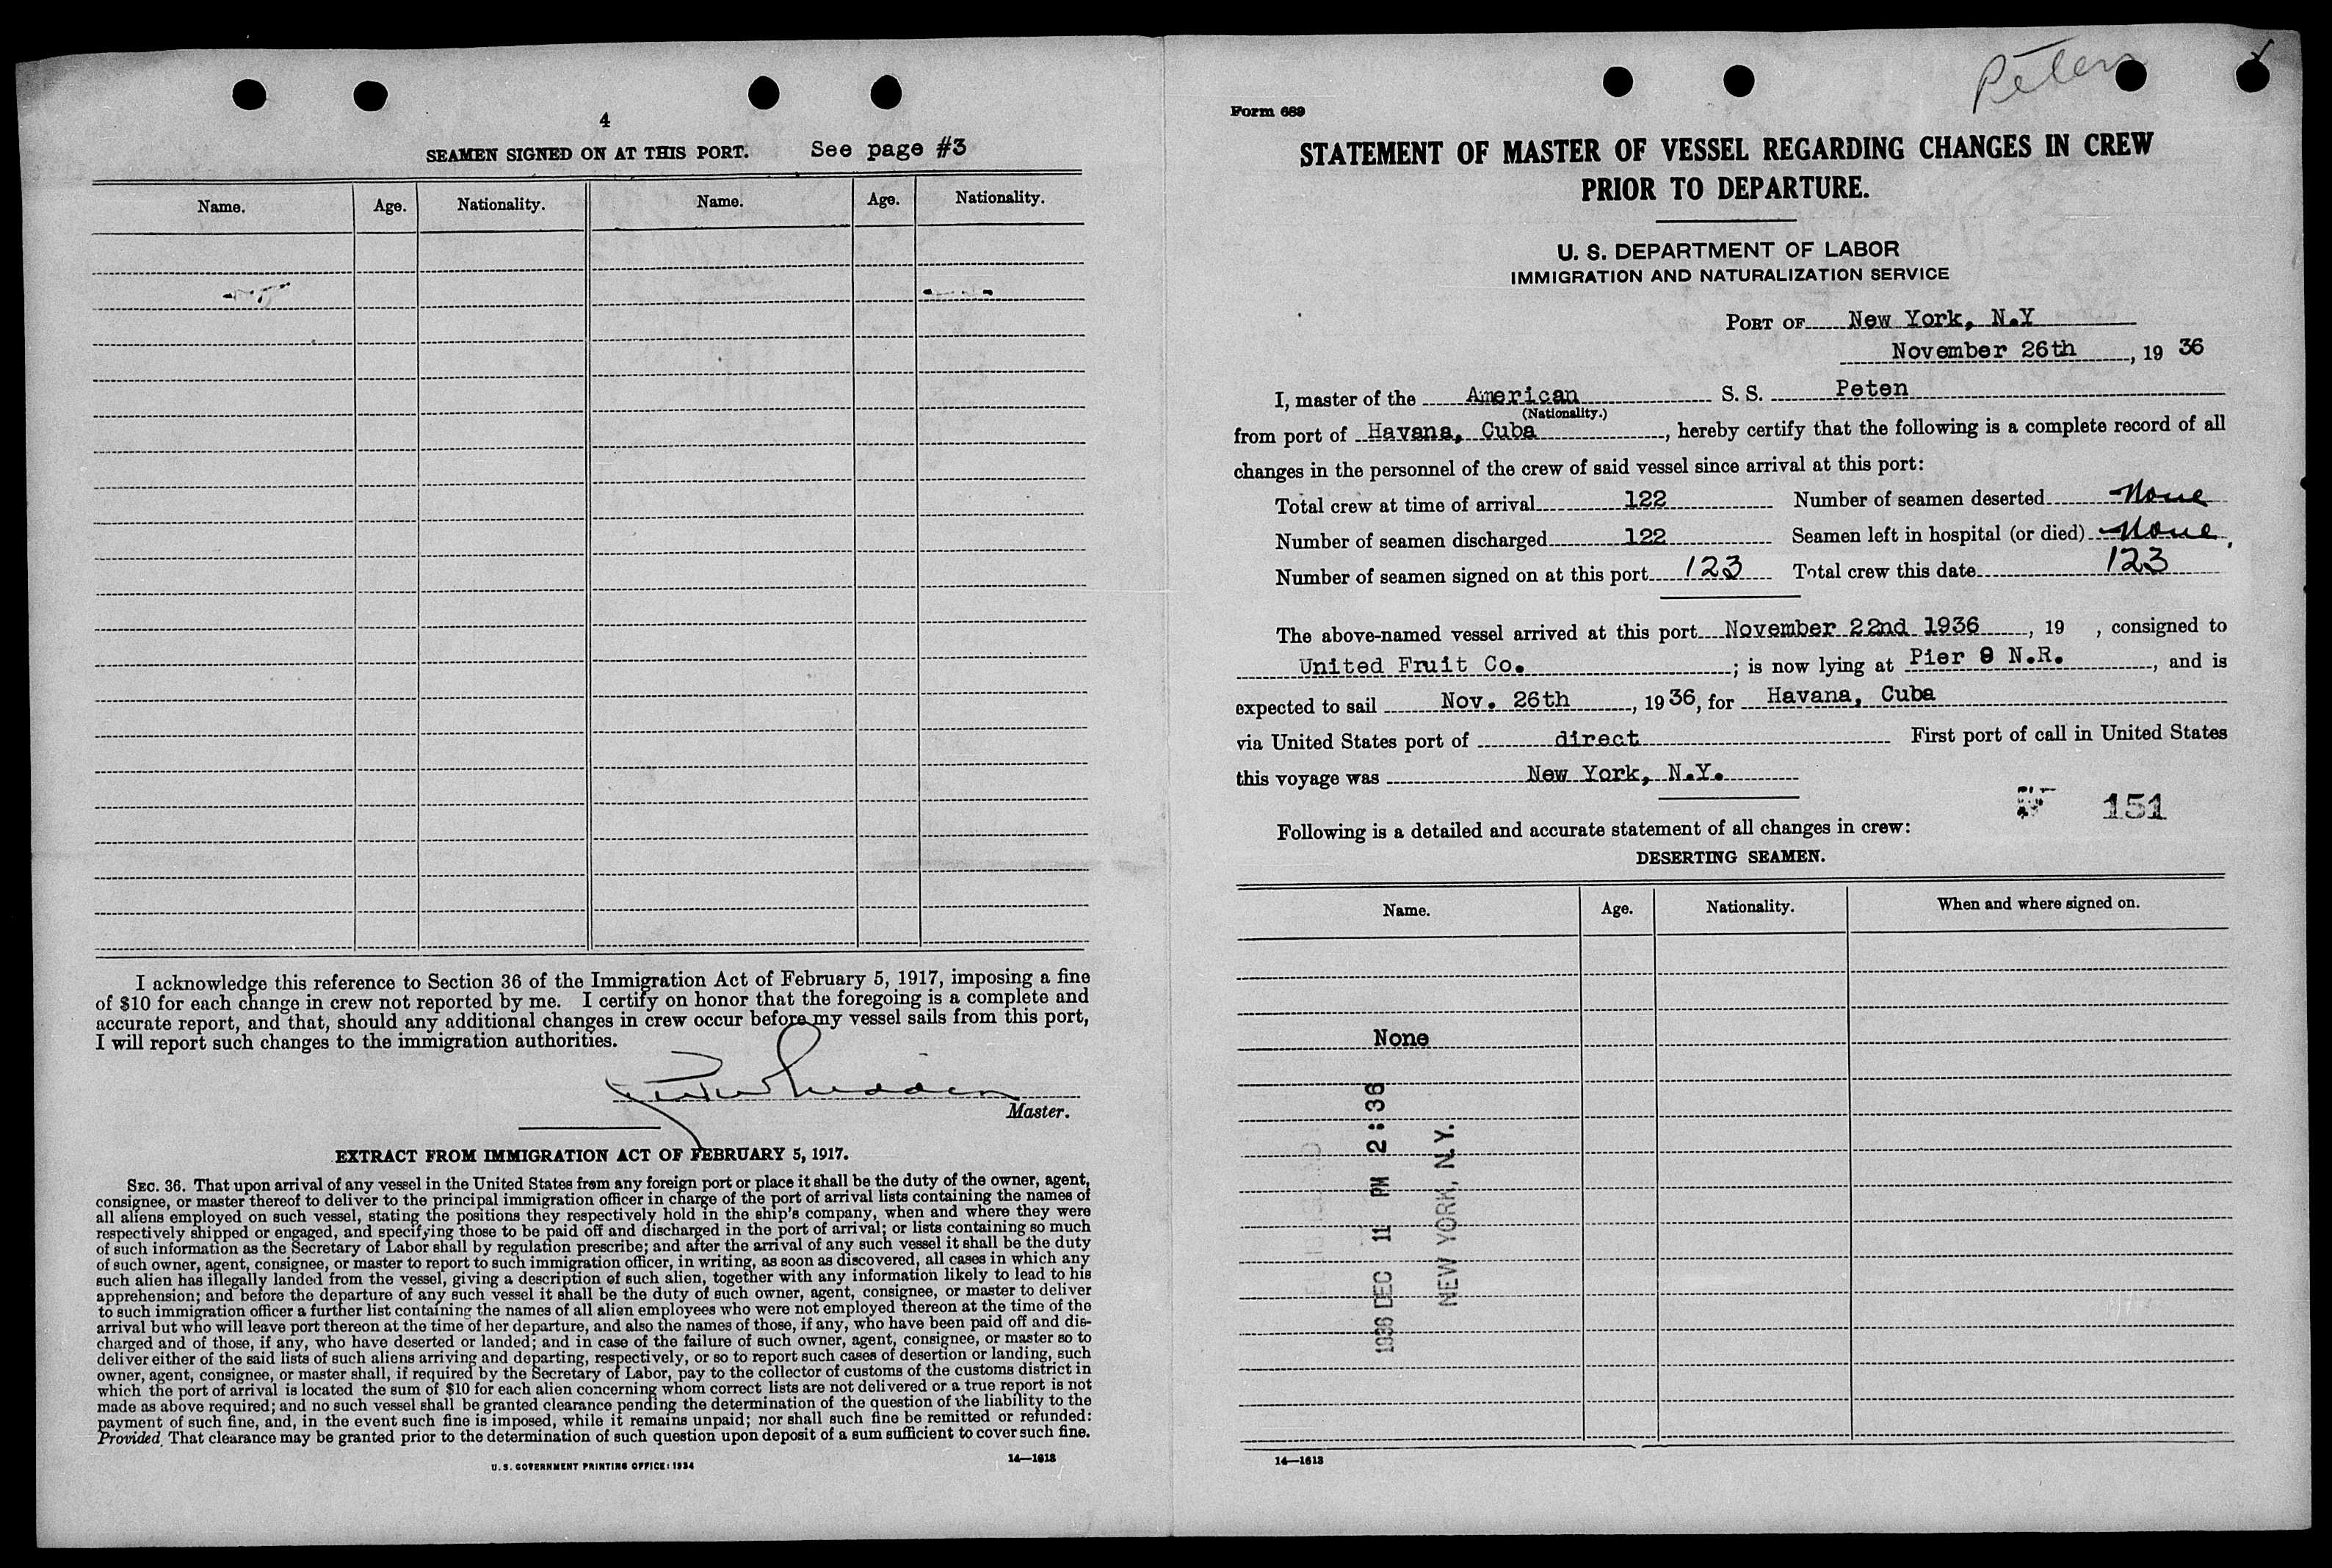 4
SEAMEN SIGNED ON AT THIS PORT. See page #3
Name. Age. Nationality. Name. Age. Nationality.
I acknowledge this reference to Section 36 of the Immigration Act of February 5, 1917, imposing a fine
of $10 for each change in crew not reported by me. I certify on honor that the foregoing is a complete and
accurate report, and that, should any additional changes in crew occur before my vessel sails from this port,
I will report such changes to the immigration authorities.
Master.
EXTRACT FROM IMMIGRATION ACT OF FEBRUARY 5, 1917.
SEC. 36. That upon arrival of any vessel in the United States from any foreign port or place it shall be the duty of the owner, agent,
consignee, or master thereof to deliver to the principal immigration officer in charge of the port of arrival lists containing the names of
all aliens employed on such vessel, stating the positions they respectively hold in the ship's company, when and where they were
respectively shipped or engaged, and specifying those to be paid off and discharged in the port of arrival; or lists containing so much
of such information as the Secretary of Labor shall by regulation prescribe; and after the arrival of any such vessel it shall be the duty
of such owner, agent, consignee, or master to report to such immigration officer, in writing, as soon as discovered, all cases in which any
such alien has illegally landed from the vessel, giving a description of such alien, together with any information likely to lead to his
apprehension; and before the departure of any such vessel it shall be the duty of such owner, agent, consignee, or master to deliver
to such immigration officer a further list containing the names of all alien employees who were not employed thereon at the time of the
arrival but who will leave port thereon at the time of her departure, and also the names of those, if any, who have been paid off and dis-
charged and of those, if any, who have deserted or landed; and in case of the failure of such owner, agent, consignee, or master so to
deliver either of the said lists of such aliens arriving and departing, respectively, or so to report such cases of desertion or landing, such
owner, agent, consignee, or master shall, if required by the Secretary of Labor, pay to the collector of customs of the customs district in
which the port of arrival is located the sum of $10 for each alien concerning whom correct lists are not delivered or a true report is not
made as above required; and no such vessel shall be granted clearance pending the determination of the question of the liability to the
payment of such fine, and, in the event such fine is imposed, while it remains unpaid; nor shall such fine be remitted or refunded:
Provided, That clearance may be granted prior to the determination of such question upon deposit of a sum sufficient to cover such fine.
U. S. GOVERNMENT PRINTING OFFICE: 1934 14—1613
Peten
Form 689
STATEMENT OF MASTER OF VESSEL REGARDING CHANGES IN CREW
PRIOR TO DEPARTURE.
U. S. DEPARTMENT OF LABOR
IMMIGRATION AND NATURALIZATION SERVICE
PORT OF New York, N.Y
November 26th, 19 36
I, master of the American S. S. Peten
(Nationality.)
from port of Havana, Cuba, hereby certify that the following is a complete record of all
changes in the personnel of the crew of said vessel since arrival at this port:
Total crew at time of arrival 122 Number of seamen deserted None
Number of seamen discharged 122 Seamen left in hospital (or died) None
Number of seamen signed on at this port 123 Total crew this date 123
The above-named vessel arrived at this port November 22nd 1936, 19 , consigned to
United Fruit Co. ; is now lying at Pier 9 N.R., and is
expected to sail Nov. 26th, 19 36, for Havana, Cuba
via United States port of direct First port of call in United States
this voyage was New York, N.Y.
151
Following is a detailed and accurate statement of all changes in crew:
DESERTING SEAMEN.
Name. Age. Nationality. When and where signed on.
None
1936 DEC 11 PM 2:36
NEW YORK, N.Y.
14—1613